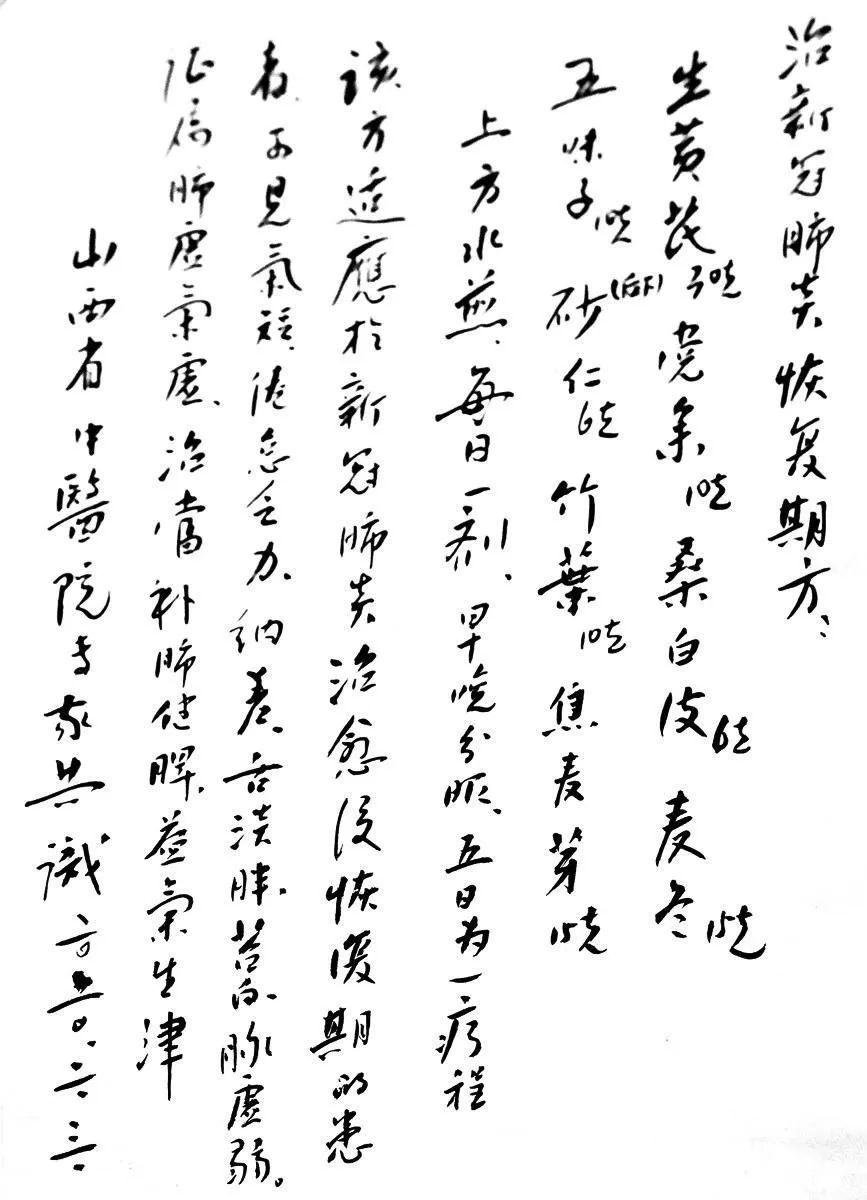 治新冠肺炎恢复期方：
生黄芪30克 党参10克 桑白皮6克 麦冬15克
五味子10克 砂(后下)仁6克 竹葉10克 焦麦芽15克
上方水煎、每日一剂、早晚分服、五日为一疗程
該方适應於新冠肺炎治愈后恢復期的患
者、可見氣短、倦怠乏力、纳差、舌淡胖、苔白、脉虚弱。
证為肺虚氣虚、治當补肺健脾、益氣生津
山西省中醫院专家共識 二〇二〇.二.三